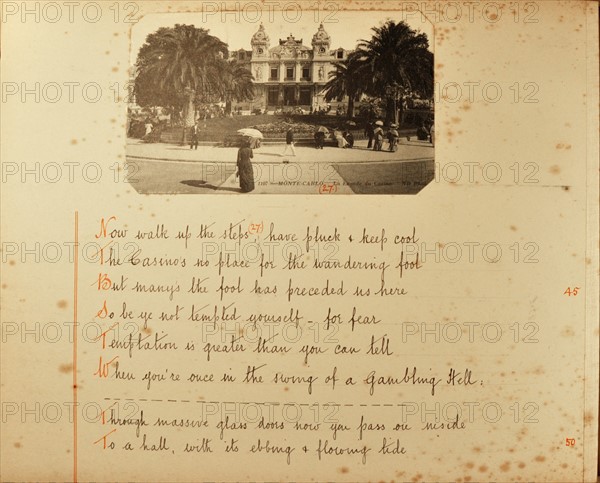 1107 - MONTE-CARLO. - La Façade du Casino ND Phot
(27.)
Now walk up the steps (27.), have pluck & keep cool
The Casino's no place for the wandering fool
But many's the fool has preceded us here
45
So be ye not tempted yourself - for fear
Temptation is greater than you can tell
When you're once in the swing of a Gambling Hell:
Through massive glass doors now you pass on inside
To a hall, with its ebbing & flowing tide
50
PHOTO12